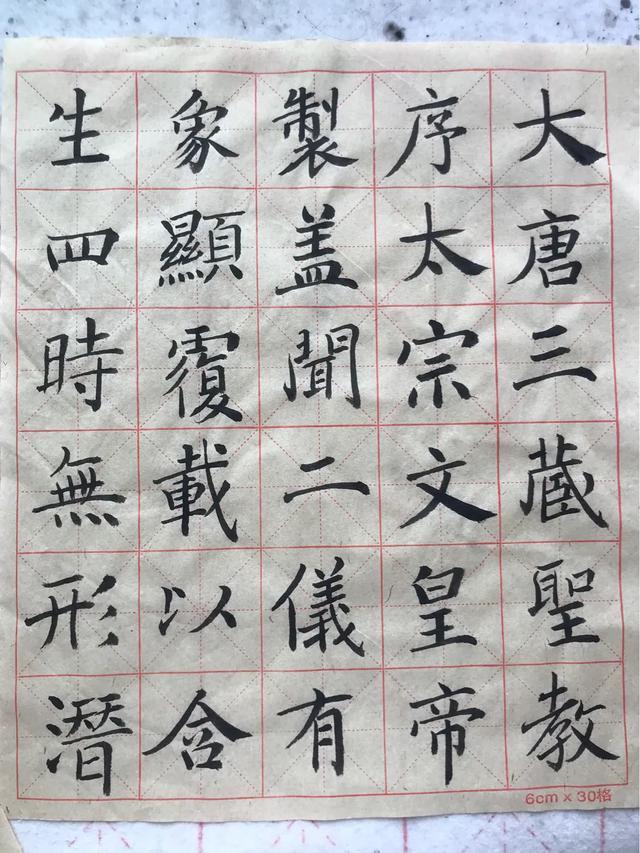 大唐三蔵聖教
序太宗文皇帝
製盖聞二儀有
象顯覆載以含
生四時無形潛
6cm x 30格